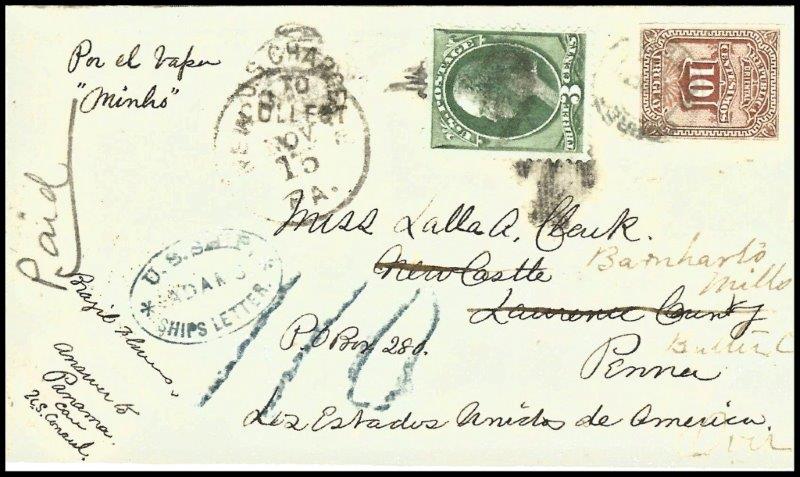 Por el Vapor
"Minho"
Paid
U.S. CHARGE
TO
COLLECT
NEW
NOV
15
PA.
U.S. POSTAGE
3
THREE CENTS
REPUBLICA
ORIENTAL
10
CENTESIMOS
URUGUAY
Miss Lalla A. Clark.
New Castle
Lawrence County
P.O Box 280.
Penna
Los Estados Unidos de America.
Barnharts
Mills
Butler C
U.S.S.
ADAMS
SHIPS LETTER.
110
Brazil Steamer
Answer to
Panama.
care
U.S. Consul.